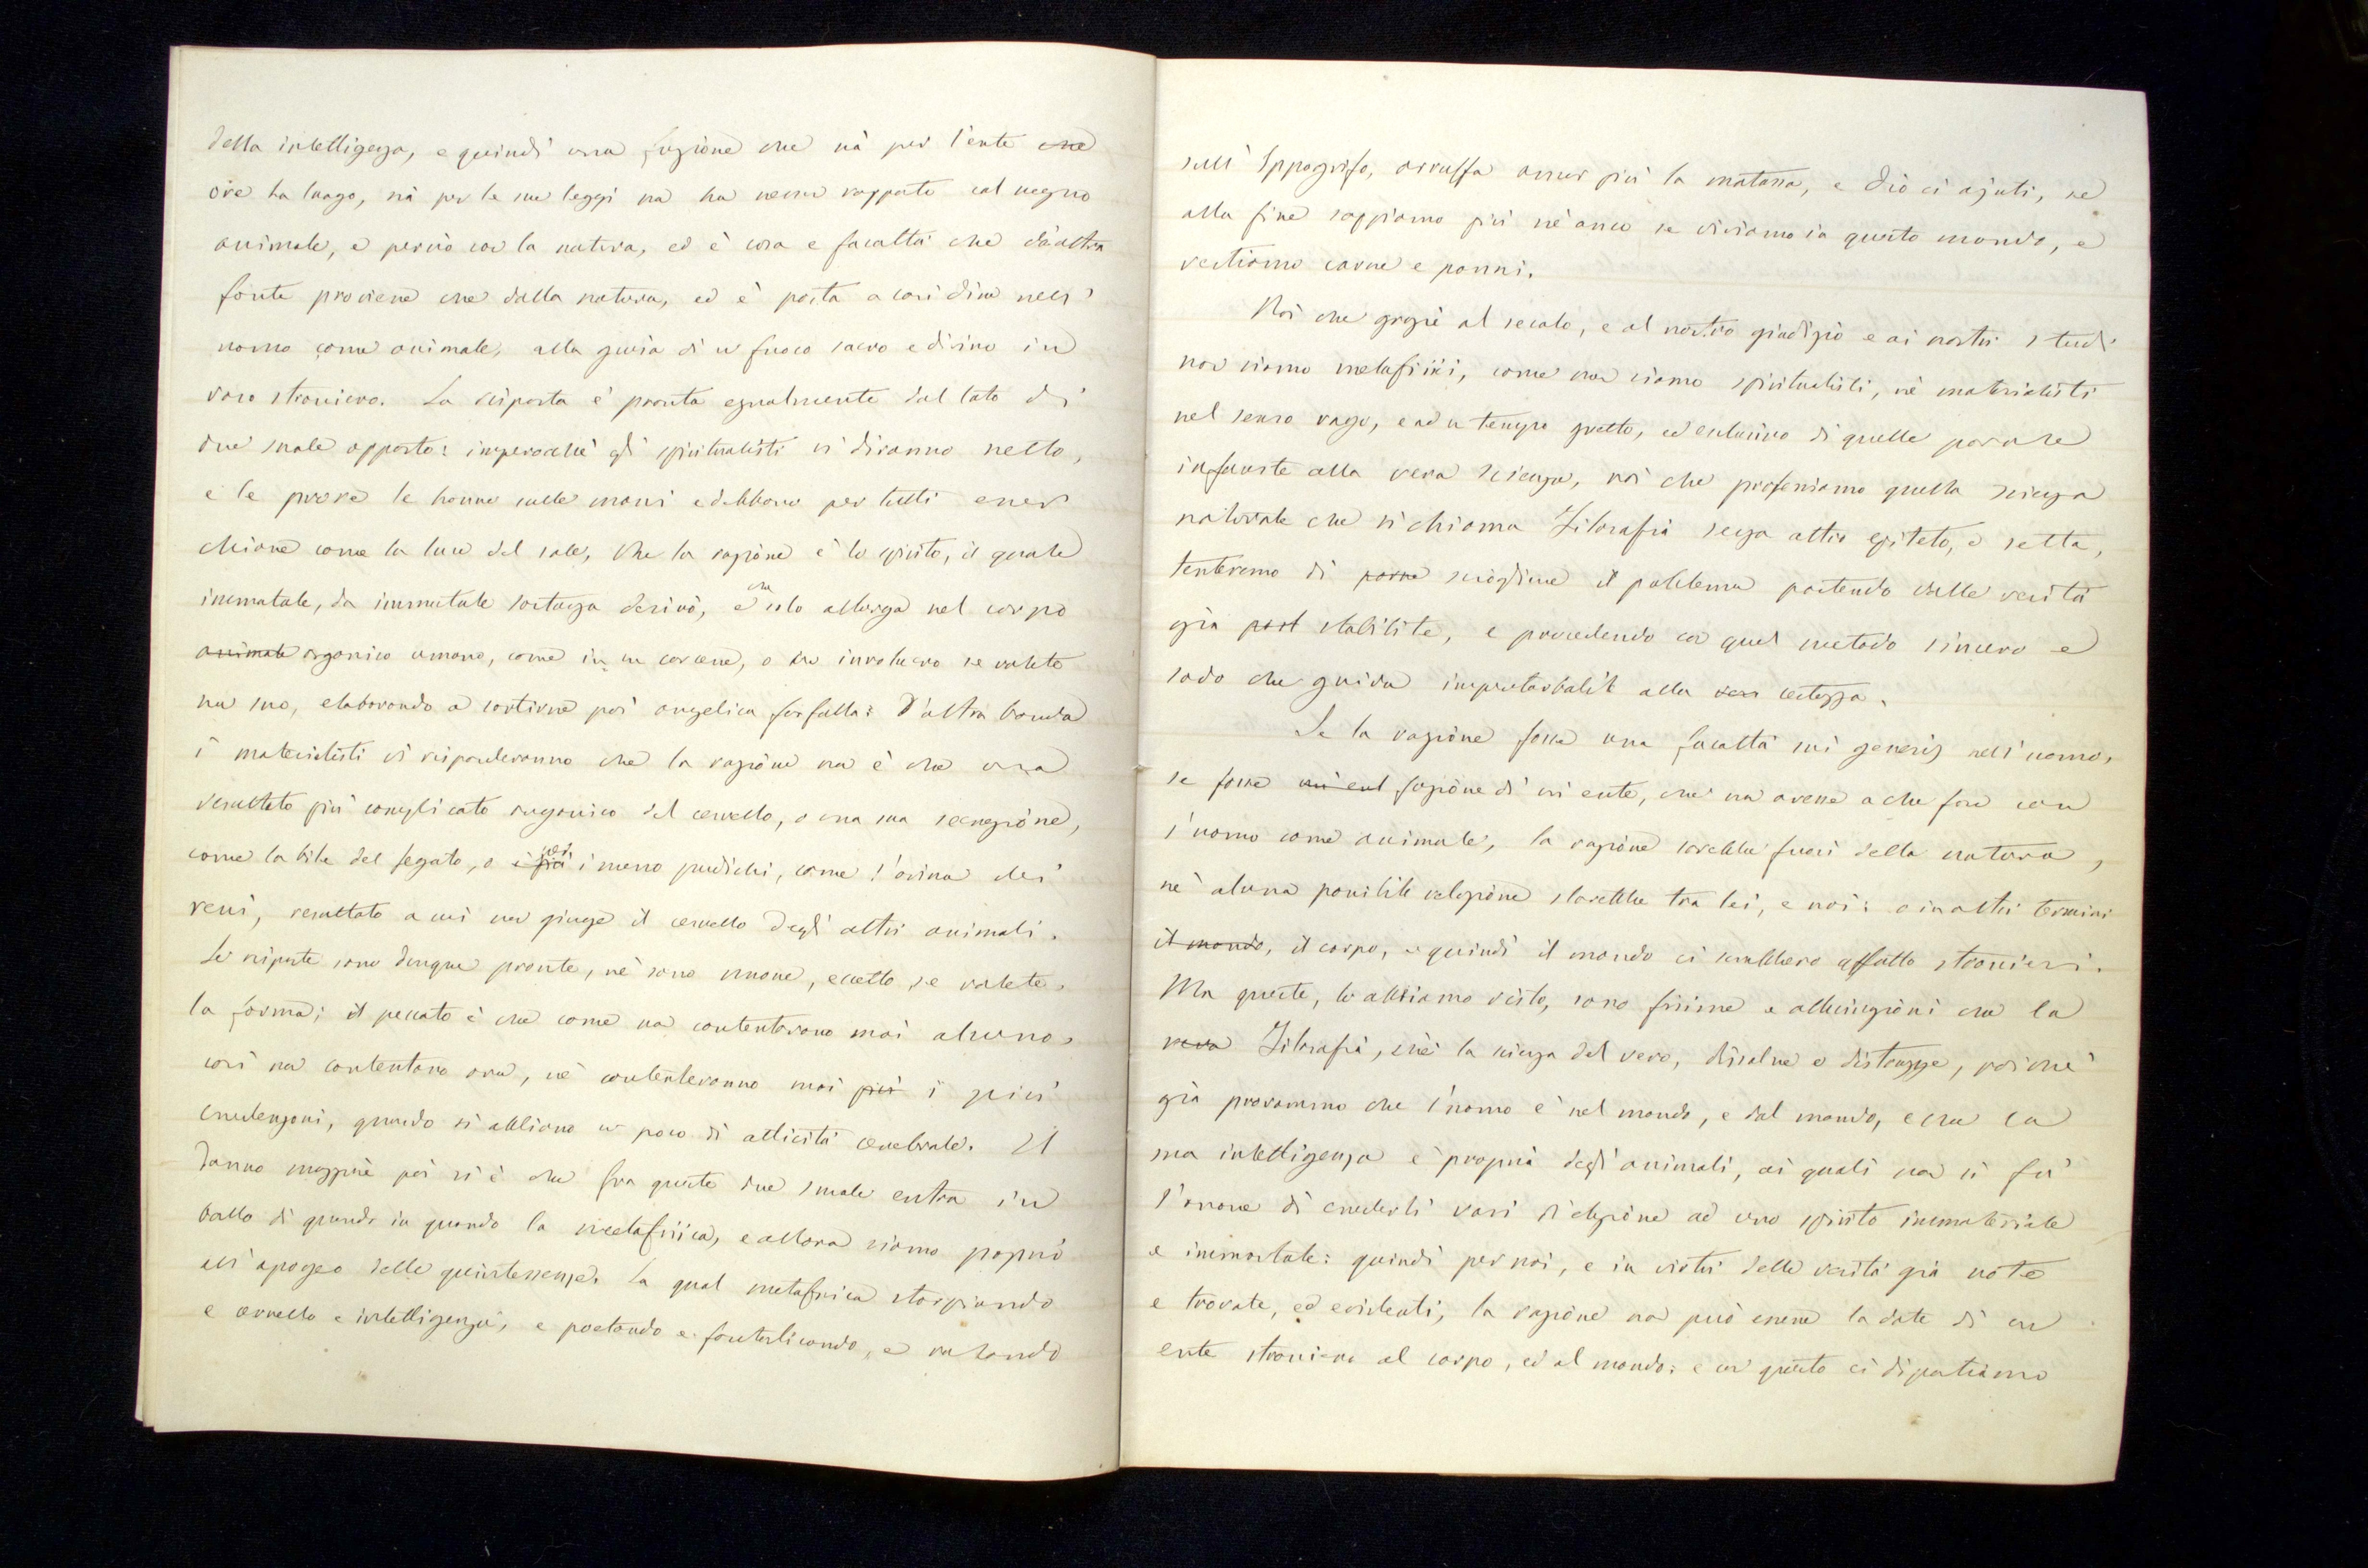 della intelligenza, e quindi una funzione che nà per l'ente che
ove ha luogo, nà per le sue leggi na ha nessun rapporto col regno
animale, e perciò con la natura, ed è cosa e facoltà che da altra
fonte proviene che dalla natura, ed è posta a così dire nell'
uomo come animale, alla guisa di un fuoco sacro e divino in
vaso straniero. La risposta è pronta egualmente dal lato di
due scuole opposte: imperocchè gli spiritualisti vi diranno netto,
e le prove le hanno sulle mani e debbono per tutti esser
chiare come la luce del sole, che la ragione è lo spirito, il quale
immortale, da immortale sostanza derivò, e che solo alberga nel corpo
animale organico umano, come in un carcere, o in involucro se volete
ma suo, elaborando a sortirne poi angelica farfalla: d'altra banda
i materialisti vi risponderanno che la ragione na è che una
resultato più complicato organico del cervello, o una sua secrezione,
come la bile del fegato, o i più per i meno pudichi, come l'orina dei
reni, resultato a cui non giunge il cervello degli altri animali.
Le risposte sono dunque pronte, nè sono nuove, eccetto se volete,
la forma; il peccato è che come na contentarono mai alcuno,
così na contentano ora, nè contenteranno mai più i più
credenzoni, quando si abbiano un poco di atticità cerebrale. Il
danno maggiore poi si è che fra queste due scuole entra in
ballo di quando in quando la metafisica, e allora siamo proprio
all'apogeo delle quintessenze. La qual metafisica storpiando
e cervello e intelligenza, e poetando e fantasticando, e volando
sull'Ippogrifo, arruffa ancor più la matassa, e Dio ci ajuti, se
alla fine sappiamo più nè anco se viviamo in questo mondo, e
vestiamo carne e panni.
Noi che grazie al secolo, e al nostro giudizio e ai nostri studi
non siamo metafisici, come non siamo spiritualisti, nè materialisti
nel senso vago, e ad un tempo gretto, ed esclusivo di quelle parole
infauste alla vera scienza, noi che professiamo quella scienza
naturale che si chiama Filosafia senza altro epiteto, o setta,
tenteremo di porne sciogliere il poblema partendo dalle verità
già post stabilite, e procedendo con quel metodo sincero e
sodo che guida imperturbabile alla vera certezza.
Se la ragione fosse una facoltà sui generis nell'uomo,
se fosse funzione di un ente, che na avesse a che fare con
l'uomo come animale, la ragione sarebbe fuori della natura,
nè alcuna possibile relazione starebbe tra lei, e noi: o in altri termini
il mondo, il corpo, e quindi il mondo ci sarebbero affatto stranieri.
Ma queste, lo abbiamo visto, sono fisime e allucinazioni che la
vera Filosafia, cioè la scienza del vero, dissolve e distrugge, poichè
già provammo che l'uomo è nel mondo, e dal mondo, e che la
sua intelligenza è propria degli animali, ai quali non si fa
l'onore di crederli vasi d'elezione ad uno spirito immateriale
e immortale: quindi per noi, e in virtù delle verità già note
e trovate, ed evidenti, la ragione na può essere la dote di un
ente straniero al corpo, ed al mondo: e con questo ci dipartiamo